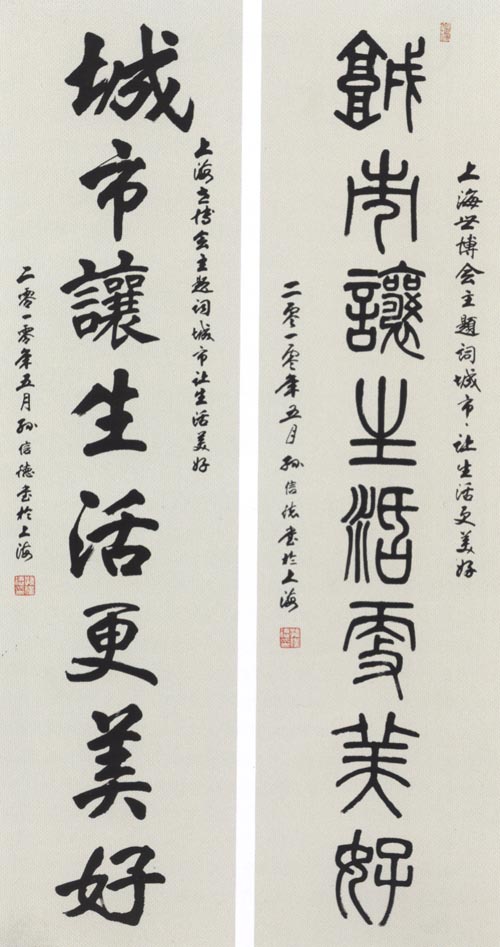 上海世博会主題詞城市、让生活更美好
城市讓生活更美好
二零一零年五月孙信德书於上海
上海世博会主题词城市让生活美好
城市讓生活更美好
二零一零年五月孙信德书於上海